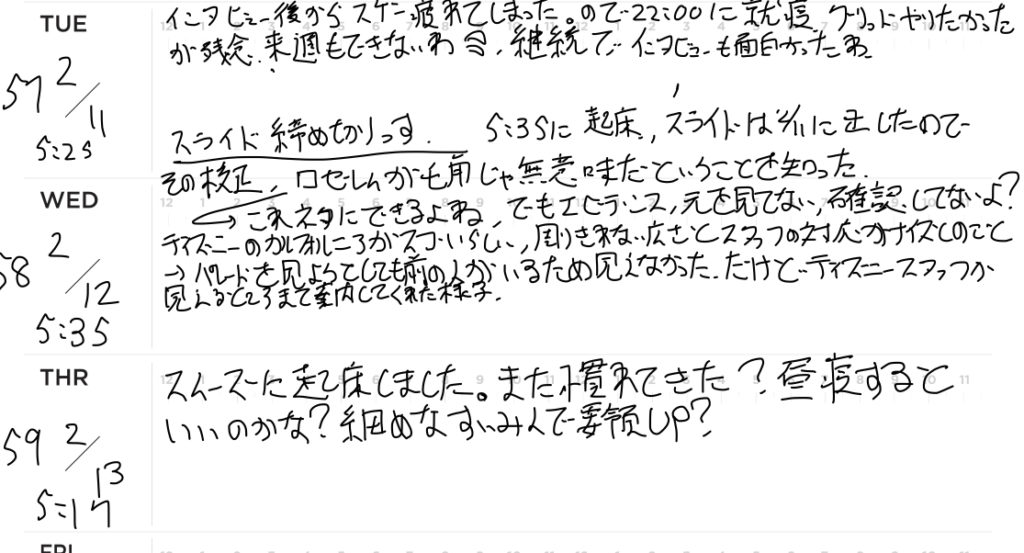 TUE
インタビュー後からスゲー疲れてしまった。ので22:00に就寝 グリットやりたかった
が残念.来週もできないわ 今,継続で インタビューも面白かったね
57 2/11
5:25
スライド締めきりっす. 5:35に起床,スライドは2/11に出したので
その校正, ロセしムが七角じゃ無意味だということを知った.
WED
→これネタにできるよね,でもエビデンス,元を見てない,確認してないよ?
58 2/12
ディズニーのがすごいらしい,周りきれない広さとスタッフの対応がナイスとのこと
→パレードを見ようとしても前の人がいるため見えなかった.だけどディズニースタッフが
見えるところまで案内してくれた様子.
5:35
THR
スムーズに起床しました。また慣れてきた?昼寝すると
いいのかな?細めなすいみんで要領UP?
59 2/13
5:17
FRI